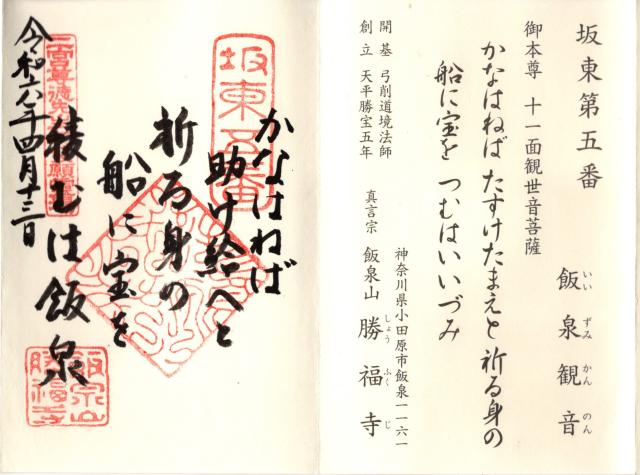 坂東第五番
飯泉観音
いい ずみ かん のん
御本尊 十一面観世音菩薩
かなはねば たすけたまえと 祈る身の
船に宝を つむはいいづみ
開基 弓削道境法師
創立 天平勝宝五年
神奈川県小田原市飯泉一一六一
真言宗 飯泉山 勝福寺
しょう ふく じ
坂東五番
かなはねば
助け給へと
祈る身の
船に宝を
積むは飯泉
二宮尊徳先
願
令和六年四月十三日
飯泉山
勝福寺